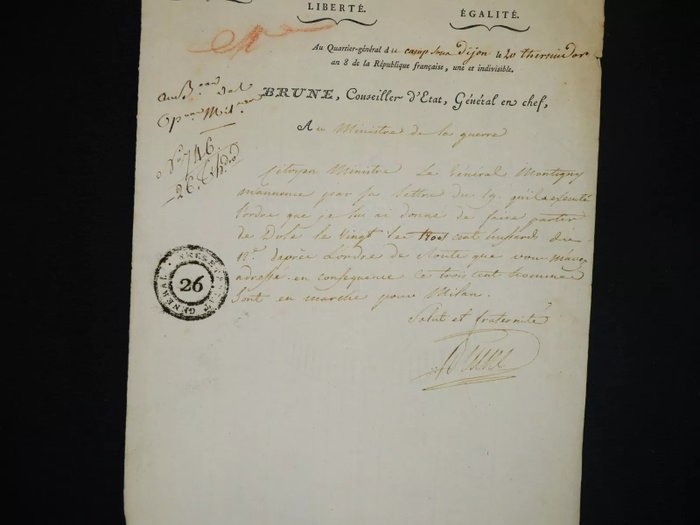 LIBERTÉ. ÉGALITÉ.
Au Quartier-général du camp sous dijon le 20 thermidor
an 8 de la République française, une et indivisible.
BRUNE, Conseiller d'Etat, Général en chef,
Au Ministre de la guerre
au B.eau des
Op.ons Mil.
746
26
Citoyen Ministre Le Général Montigny
mannonce par sa lettre du 19 qu'il a exécuté
l'ordre que je lui ai donné de faire partir
de Dole le vingt les trois cent hussards du
12.e daprès L'ordre de route que vous m'avez
adressé. en conséquence Ces trois cent hommes
sont en marche pour Milan.
Salut et fraternité
Brune
GÉNÉRAL
26